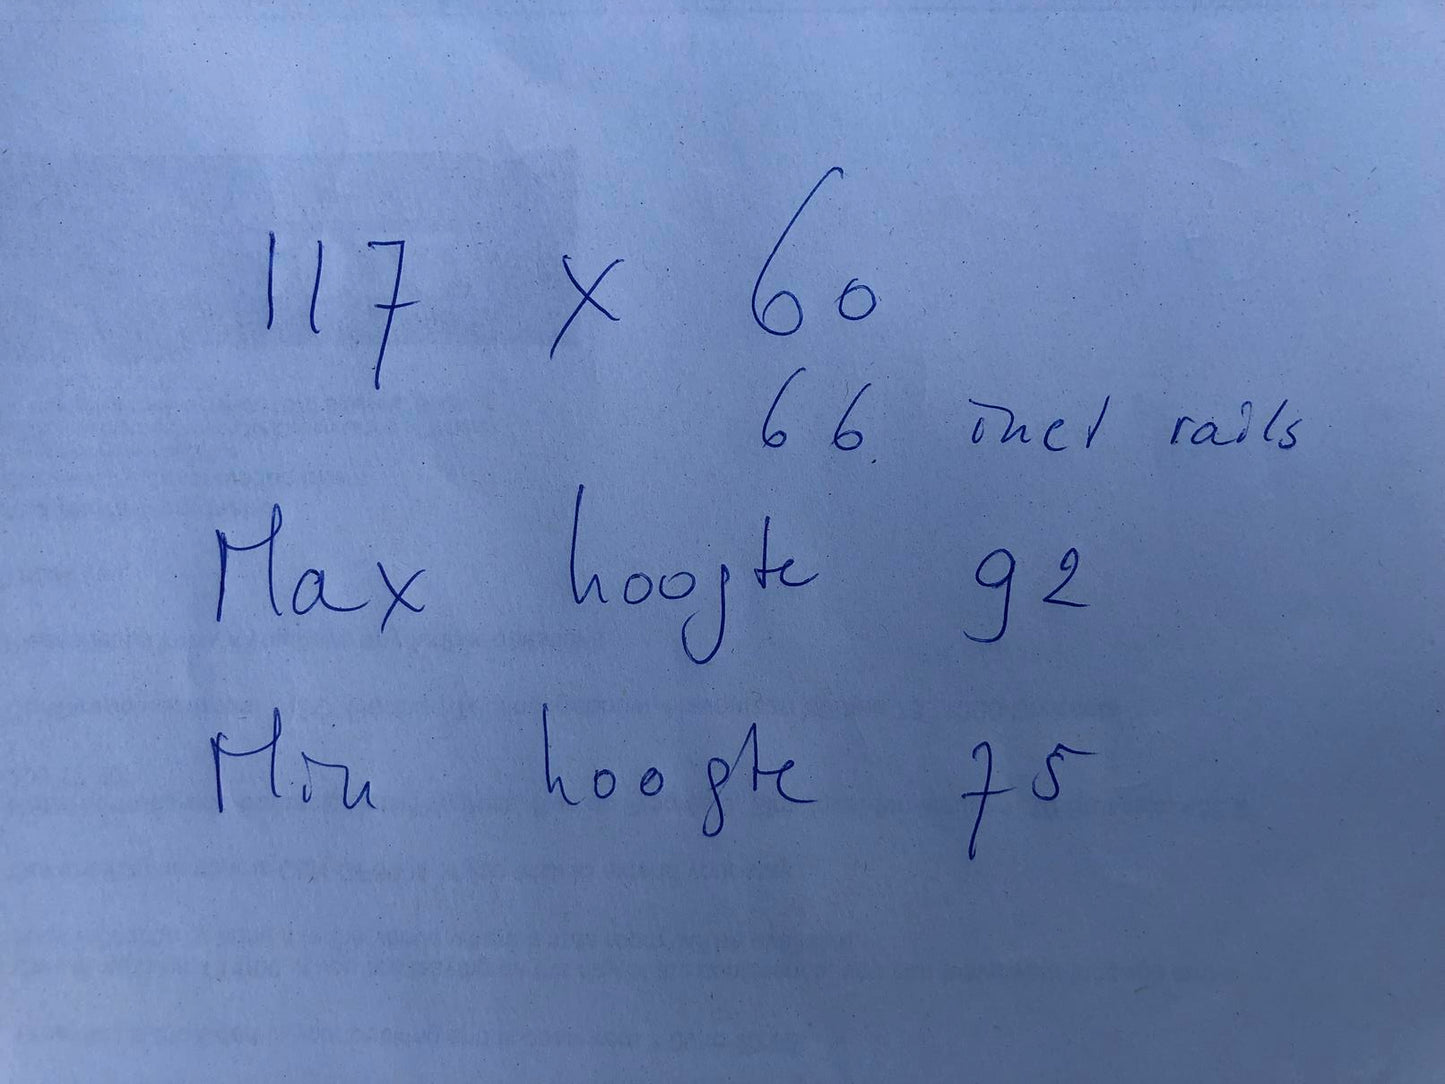 117 x 60
66 incl rails
Max hoogte 92
Min hoogte 75